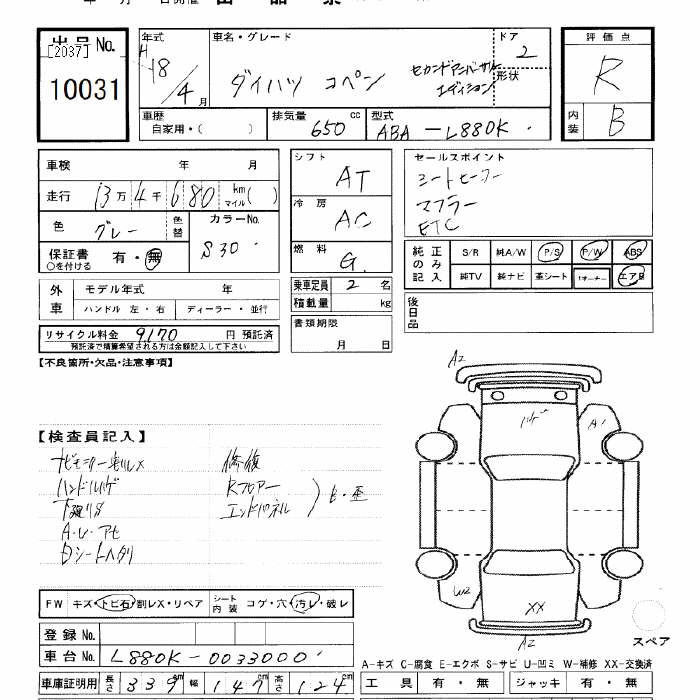 出品No.
[2037]
10031
年式
H
18/4月
車名・グレード
ダイハツ コペン
セカンドアニバーサリーエディション
ドア
2
形状
評価点
R
内装
B
車歴
自家用・( )
排気量
650 cc
型式
ABA-L880K
車検 年 月
走行 13万4千680 km マイル( )
色 グレー
色替
カラーNo.
S30
保証書 有・無
○を付ける
シフト
AT
冷房
AC
燃料
G
セールスポイント
シートヒーター
マフラー
ETC
純正のみ記入
S/R 純A/W P/S P/W ABS
純TV 純ナビ 革シート 1オーナー エアB
外車
モデル年式 年
ハンドル 左・右 ディーラー・並行
乗車定員 2 名
積載量 kg
後日品
リサイクル料金 9170 円 預託済
預託済で積算希望される方は金額記入して下さい
書類期限
月 日
【不良箇所・欠品・注意事項】
A2
ハゲ
A1
【検査員記入】
ナビモニター割レX
ハンドルハゲ
下廻りサ
A・U・アセ
白シートヘタリ
修復
Rフロアー
エンドパネル
ヒ・歪
W2
XX
A2
スペア
FW キズ・トビ石・割レX・リペア
シート内装 コゲ・穴・汚レ・破レ
登録No.
車台No. L880K-0033000
A-キズ C-腐食 E-エクボ S-サビ U-凹ミ W-補修 XX-交換済
車庫証明用 長さ 339cm 幅 147cm 高さ 124cm
工具 有・無 ジャッキ 有・無